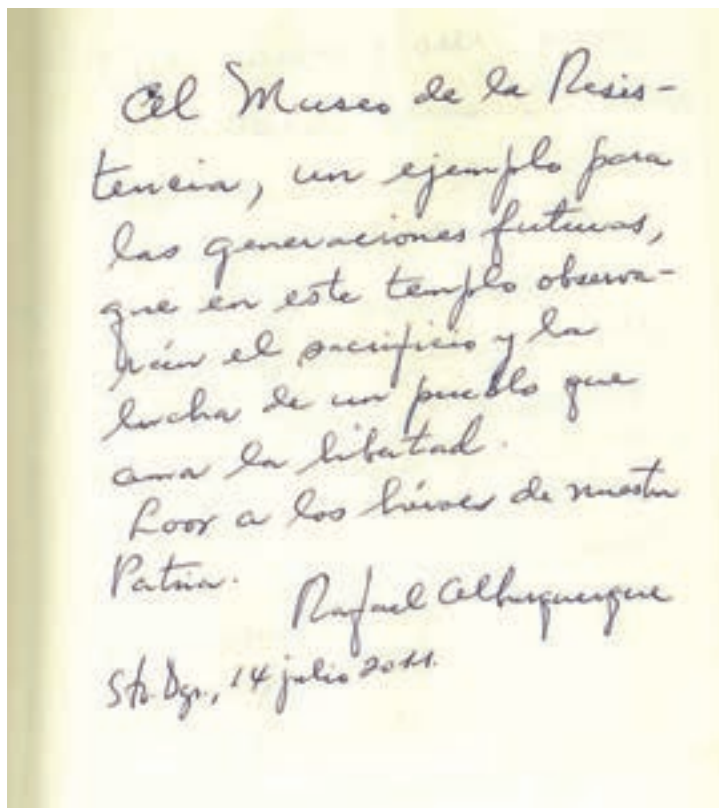 Al Museo de la Resis-
tencia, un ejemplo para
las generaciones futuras,
que en este templo observa-
rán el sacrificio y la
lucha de un pueblo que
ama la libertad.
Loor a los héroes de nuestra
Patria.
Rafael Alburquerque
Sto. Dgo., 14 julio 2011.